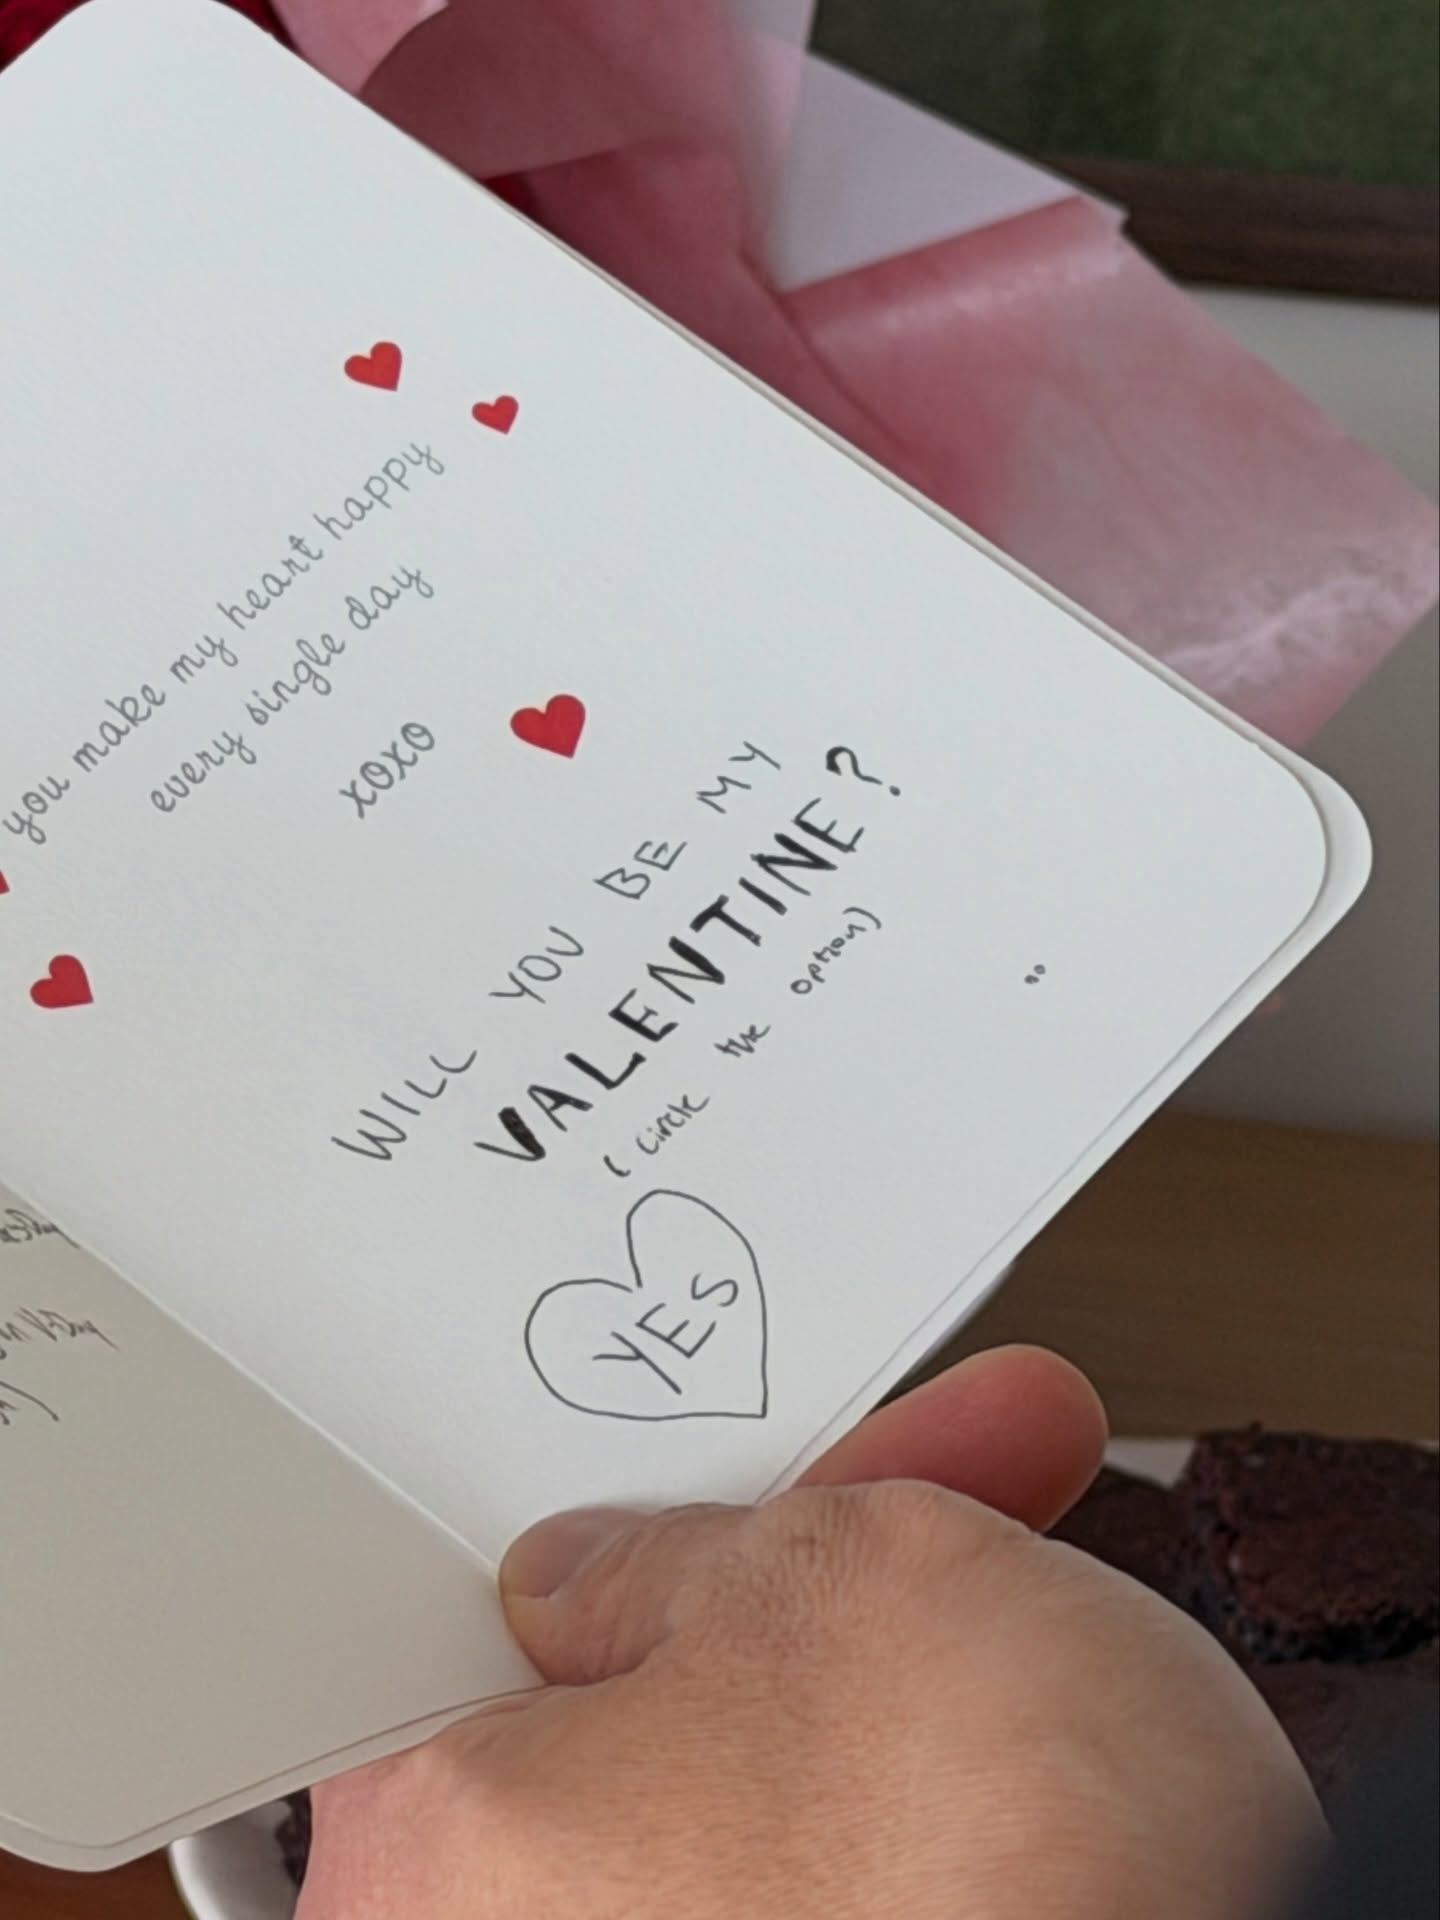 you make my heart happy
every single day
xoxo
WILL YOU BE MY
VALENTINE?
(circle the option)
YES